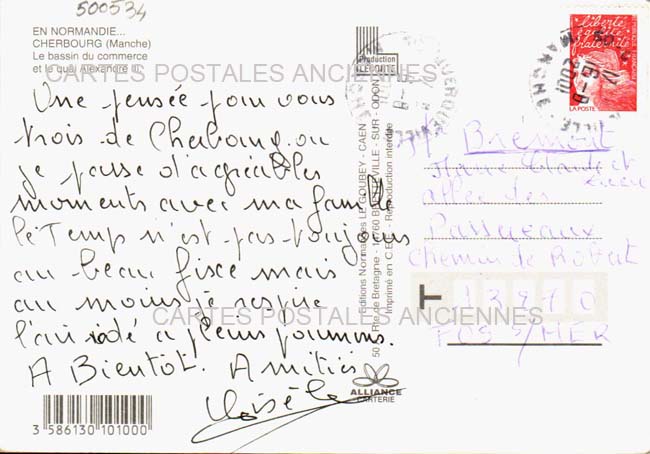 500534
EN NORMANDIE...
CHERBOURG (Manche)
Le bassin du commerce
et le quai Alexandre III.
CARTES POSTALES ANCIENNES
Une pensée pour vous
trois de Cherbourg ou
je passe d'agréables
moments avec ma famille
le Temps n'est pas toujours
au beau fisce mais
au moins je respire
l'air iodé a pleins poumons.
A Bientôt. Amitiés
Gisèle
3 586130 101000
Production
LE GOUBEY
Editions Normandes LE GOUBEY - CAEN
50, Rte de Bretagne - 14760 BRETTEVILLE - SUR - ODON
Imprimé en C.E.E. - Reproduction interdite
ALLIANCE
CARTERIE
liberté
égalité
fraternité
LA POSTE
MANCHE
2001
Bremont
Marie Claude et
allée des
Passereaux
Chemin de
T 13270
FOS S/MER
CARTES POSTALES ANCIENNES